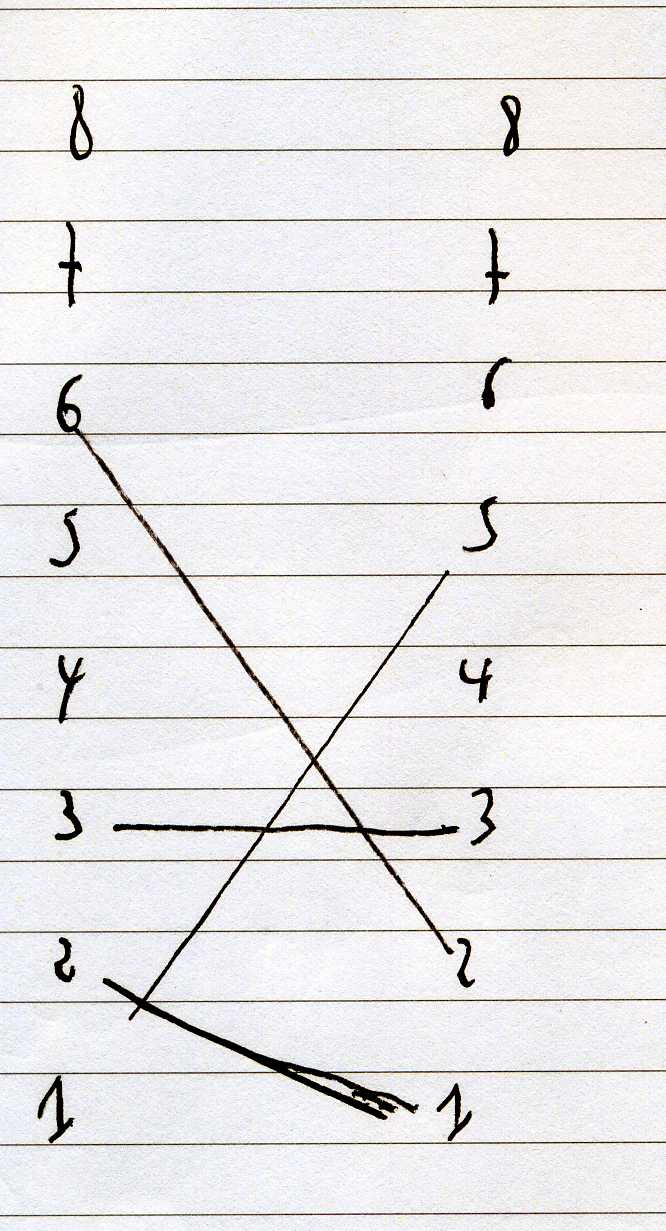 8 8
7 7
6 6
5 5
4 4
3 3
2 2
1 1